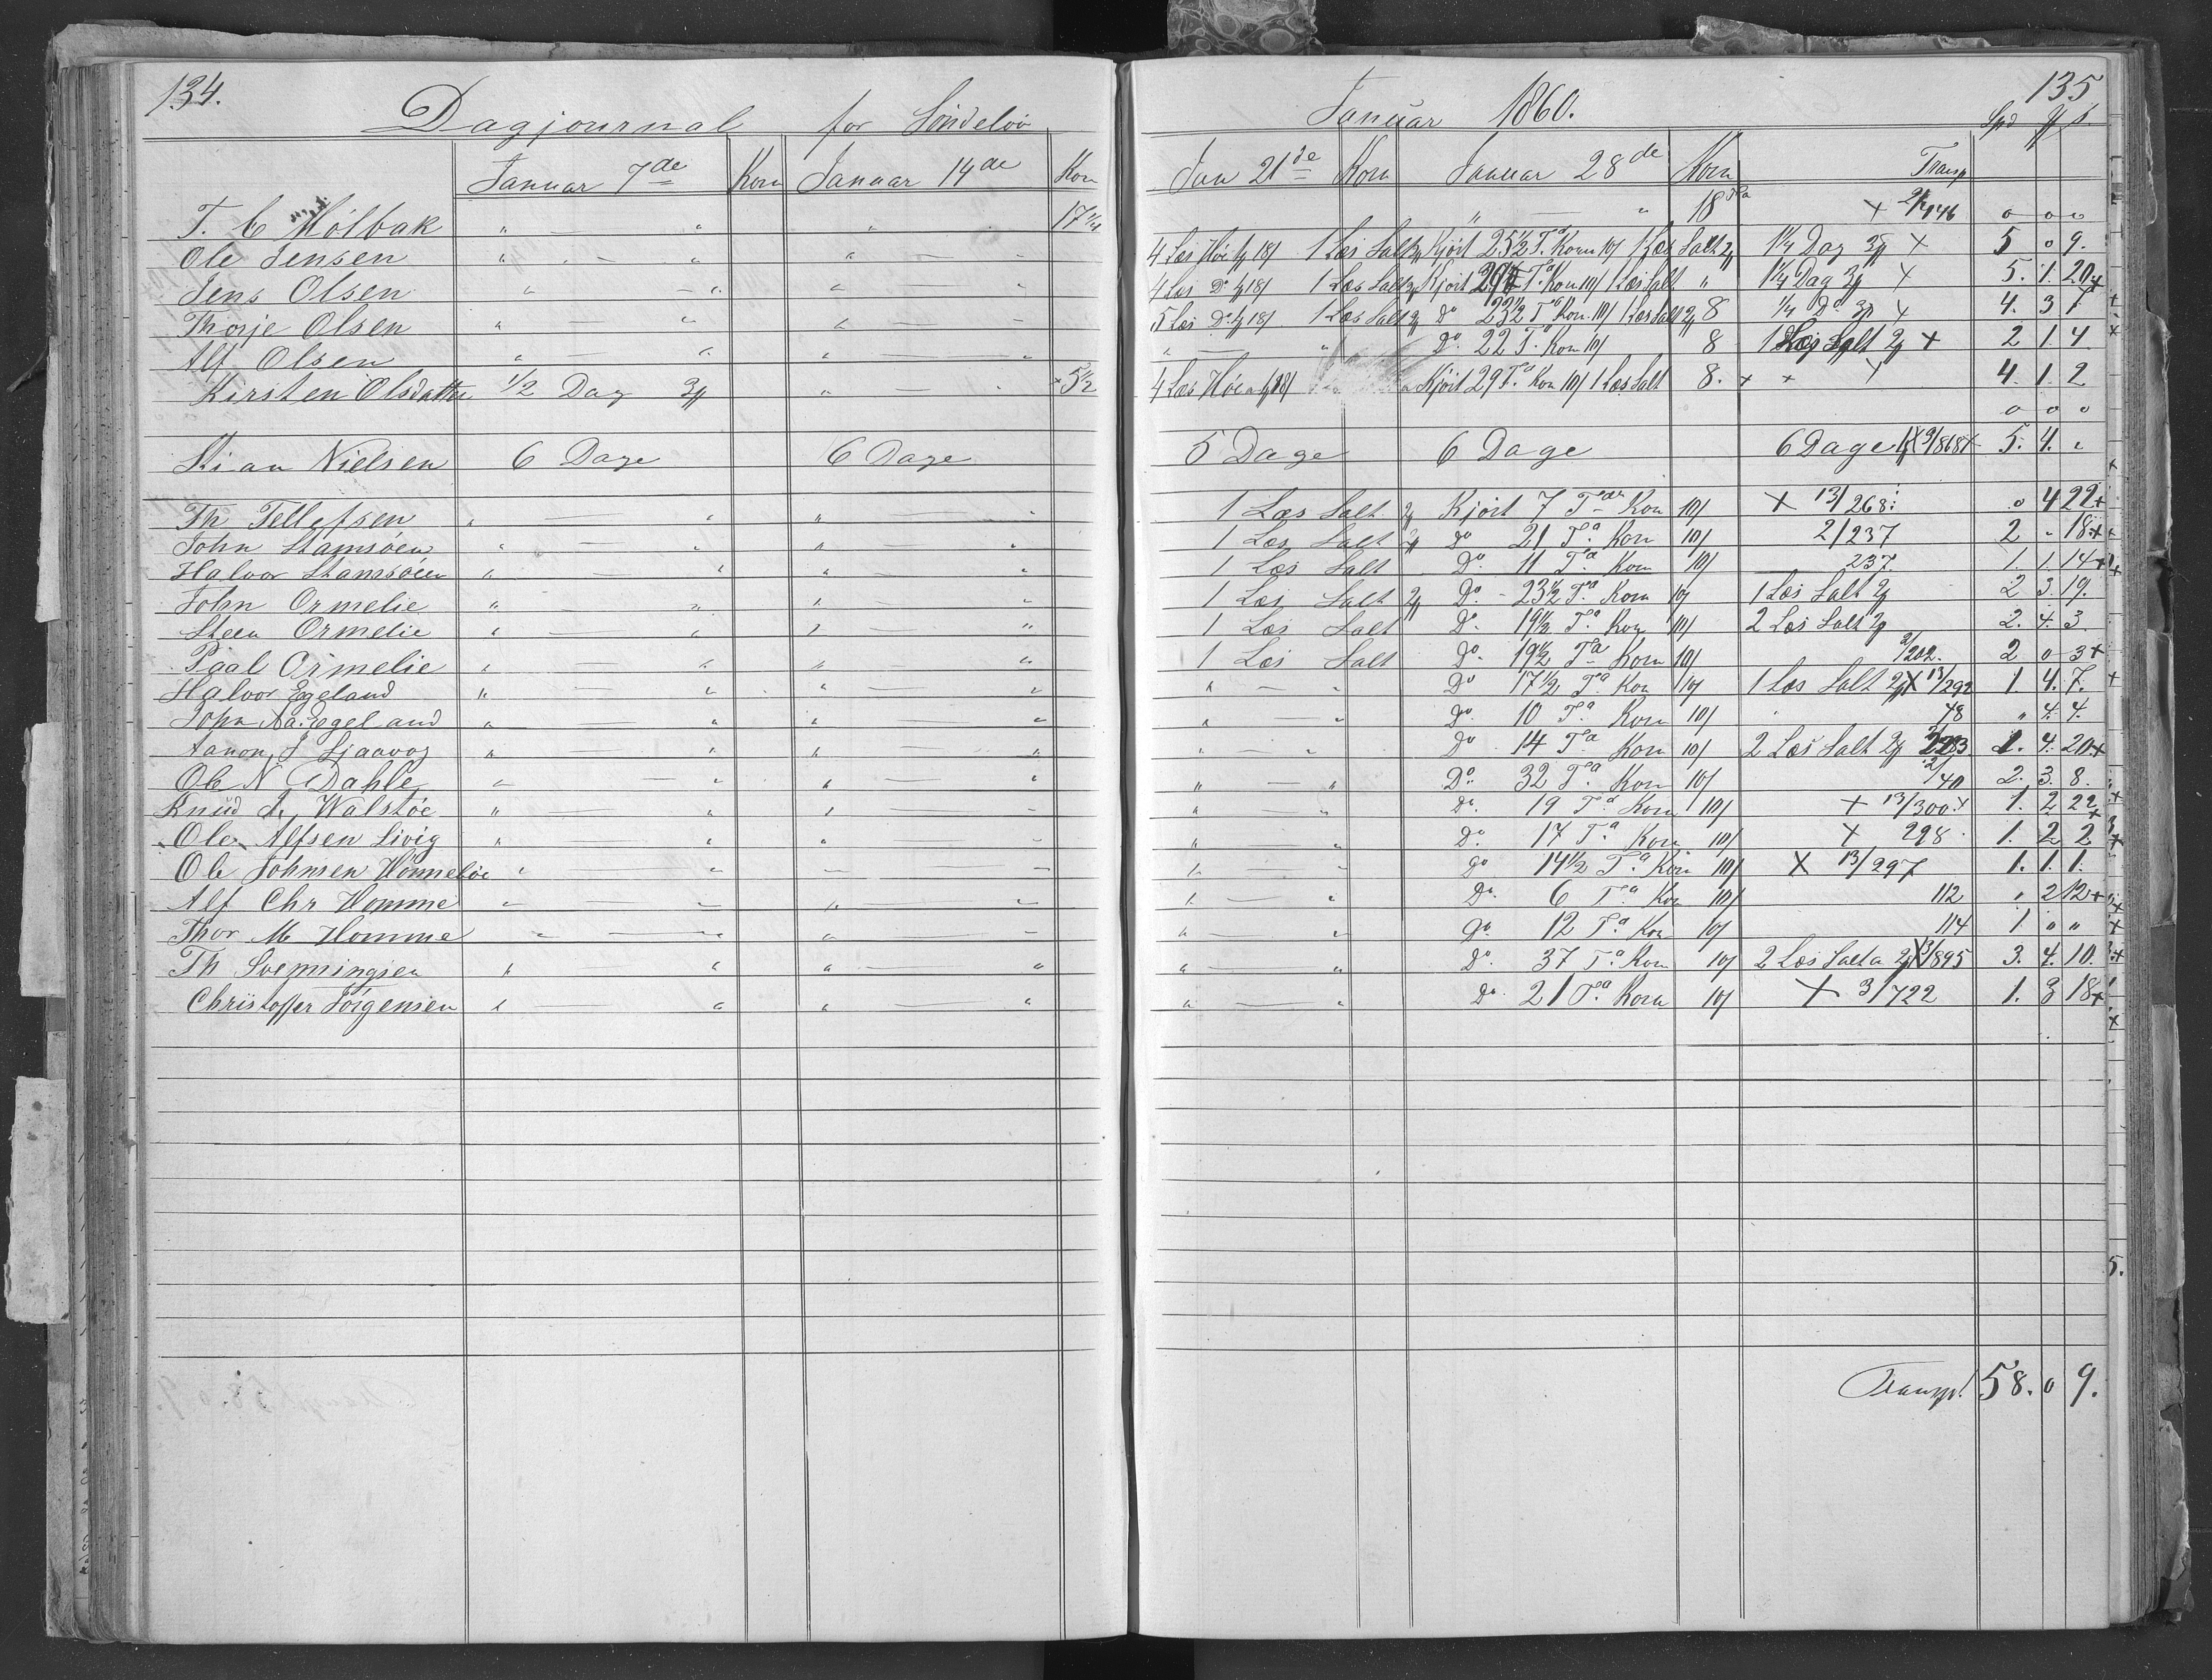 134.
Dagjournal for Söndeløv
Januar 7de Korn Januar 14de Korn
T. C Hölbak " — " " — " 17 1/4
Ole Jensen " — " " — "
Jens Olsen " — " " — "
Thorje Olsen " — " " — "
Alf Olsen " — " " — "
Kirsten Olsdatter 1/2 Dag 3 " — " + 5 1/2
Kian Nielsen 6 Dage 6 Dage
Th Tellefsen " — " " — "
John Stamsöen " — " " — "
Halvor Stamsöen " — " " — "
John Ormelie " — " " — "
Steen Ormelie " — " " — "
Paal Ormelie " — " " — "
Halvor Egeland " — " " — "
John Aa. Egeland " — " " — "
Aanon J Ljaavag " — " " — "
Ole N Dahle " — " " — "
Knud A, Walstöe " — " " — "
Ole Alfsen Livig " — " " — "
Ole Johnsen Hommeløe " — " " — "
Alf Chr Homme " — " " — "
Thor M Homme " — " " — "
Th Svenningsen " — " " — "
Christoffer Jörgensen " — " " — "
135
Januar 1860.
Spd
Jan 21de Korn Januar 28de Korn Transp
" — " 18 Ta + 2/446 0 0 0
4 Læs Höe 18/ 1 Læs Salt Kjört 25 1/2 Ta Korn 10/ 1 Læs Salt 1 1/4 Dag + 5 0 9.
4 Læs Do 18/ 1 Læs Salt Kjört Ta Korn 10/ 1 Læs Salt " 1 1/4 Dag + 5. 1. 20 +
5 Læs Do 18/ 1 Læs Salt Do 23 1/2 Ta Korn 10/ 1 Læs Salt 8 1/4 Do + 4. 3 1
" — " Do. 22 T. Korn 10/ 8 1 Læs Salt + 2 1 4
4 Læs Höe 18/ Kjört 29 Ta Korn 10/ 1 Læs Salt 8. + + + 4. 1. 2
0 0 0
5 Dage 6 Dage 6 Dage 5. 4. "
1 Læs Salt Kjört 7 Tdr Korn 10/ + 13/268. 0 4 22 +
1 Læs Salt do 21 Ta Korn 10/ 2/237 2 " 18 +
1 Læs Salt Do. 11 Ta Korn 10/ 237. 1. 1. 14 +
1 Læs Salt Do. 23 1/2 Ta Korn 10/ 1 Læs Salt 2 3. 19.
1 Læs Salt Do. 19 1/2 Ta Korn 10/ 2 Læs Salt 2. 4. 3.
1 Læs Salt Do. 19 1/2 Ta Korn 10/ 2/202. 2 0 3 +
" — " Do 17 1/2 Ta Korn 10/ 1 Læs Salt X 13/292 1. 4. 7.
" — " Do. 10 Ta Korn 10/ 48 " 4. 4.
" — " Do 14 Ta Korn 10/ 2 Læs Salt 1. 4. 20. +
" — " Do. 32 Ta Korn 10/ 2/40 2. 3. 8.
" — " Do. 19 Ta Korn 10/ + 13/300. + 1. 2 22 +
" — " Do. 17 Ta Korn 10/ + 298. 1. 2 2
" — " Do 14 1/2 Ta Korn 10/ X 13/297 1. 1. 1.
" — " Do. 6 Ta Korn 10/ 112 " 2 12 +
" — " Do. 12 Ta Korn 10/ 114 1 " "
" — " Do. 37 Ta Korn 10/ 2 Læs Salt a X 3/895 3. 4. 10.
" — " Do. 21 Ta Korn 10/ + 3/722 1. 3 18 +
Transp. 58. 0 9.